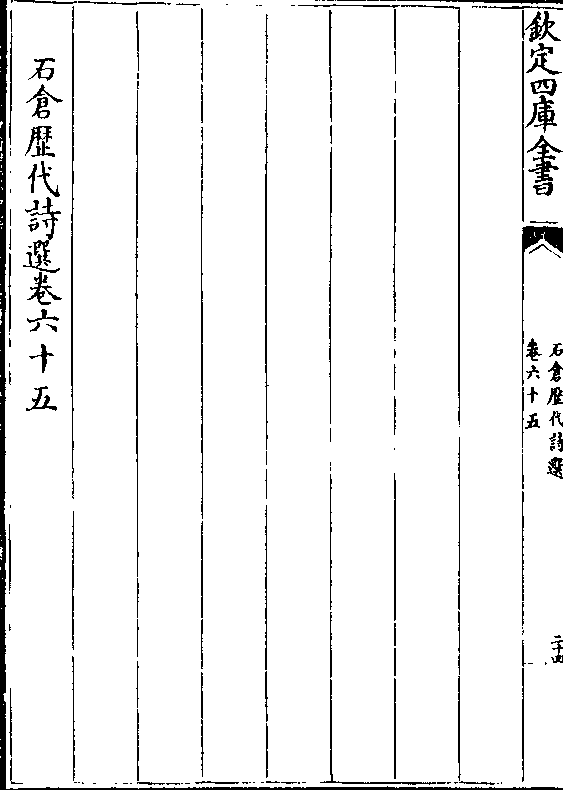 欽定四庫全書
石倉歴代詩選
卷六十五
二十四
石倉歴代詩選卷六十五